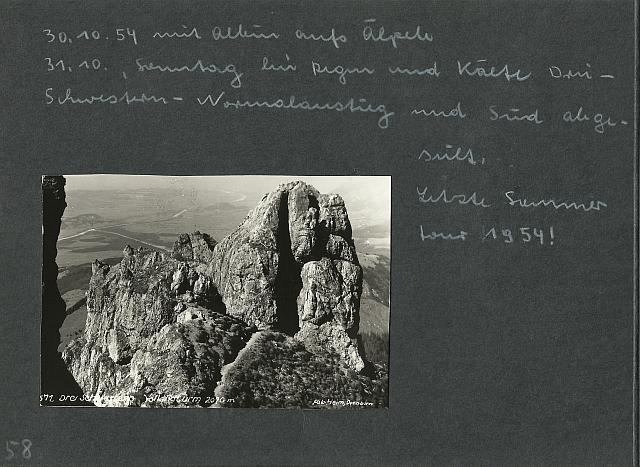 30.10.54 mit Albin aufs Älpele
31.10., Sonntag bei Regen und Kälte Drei-
Schwestern-Normalanstieg und Süd abge-
seilt.
Letzte Sommer
tour 1954!
571. Drei Schwestern, 2070 m
Dornbirn
58